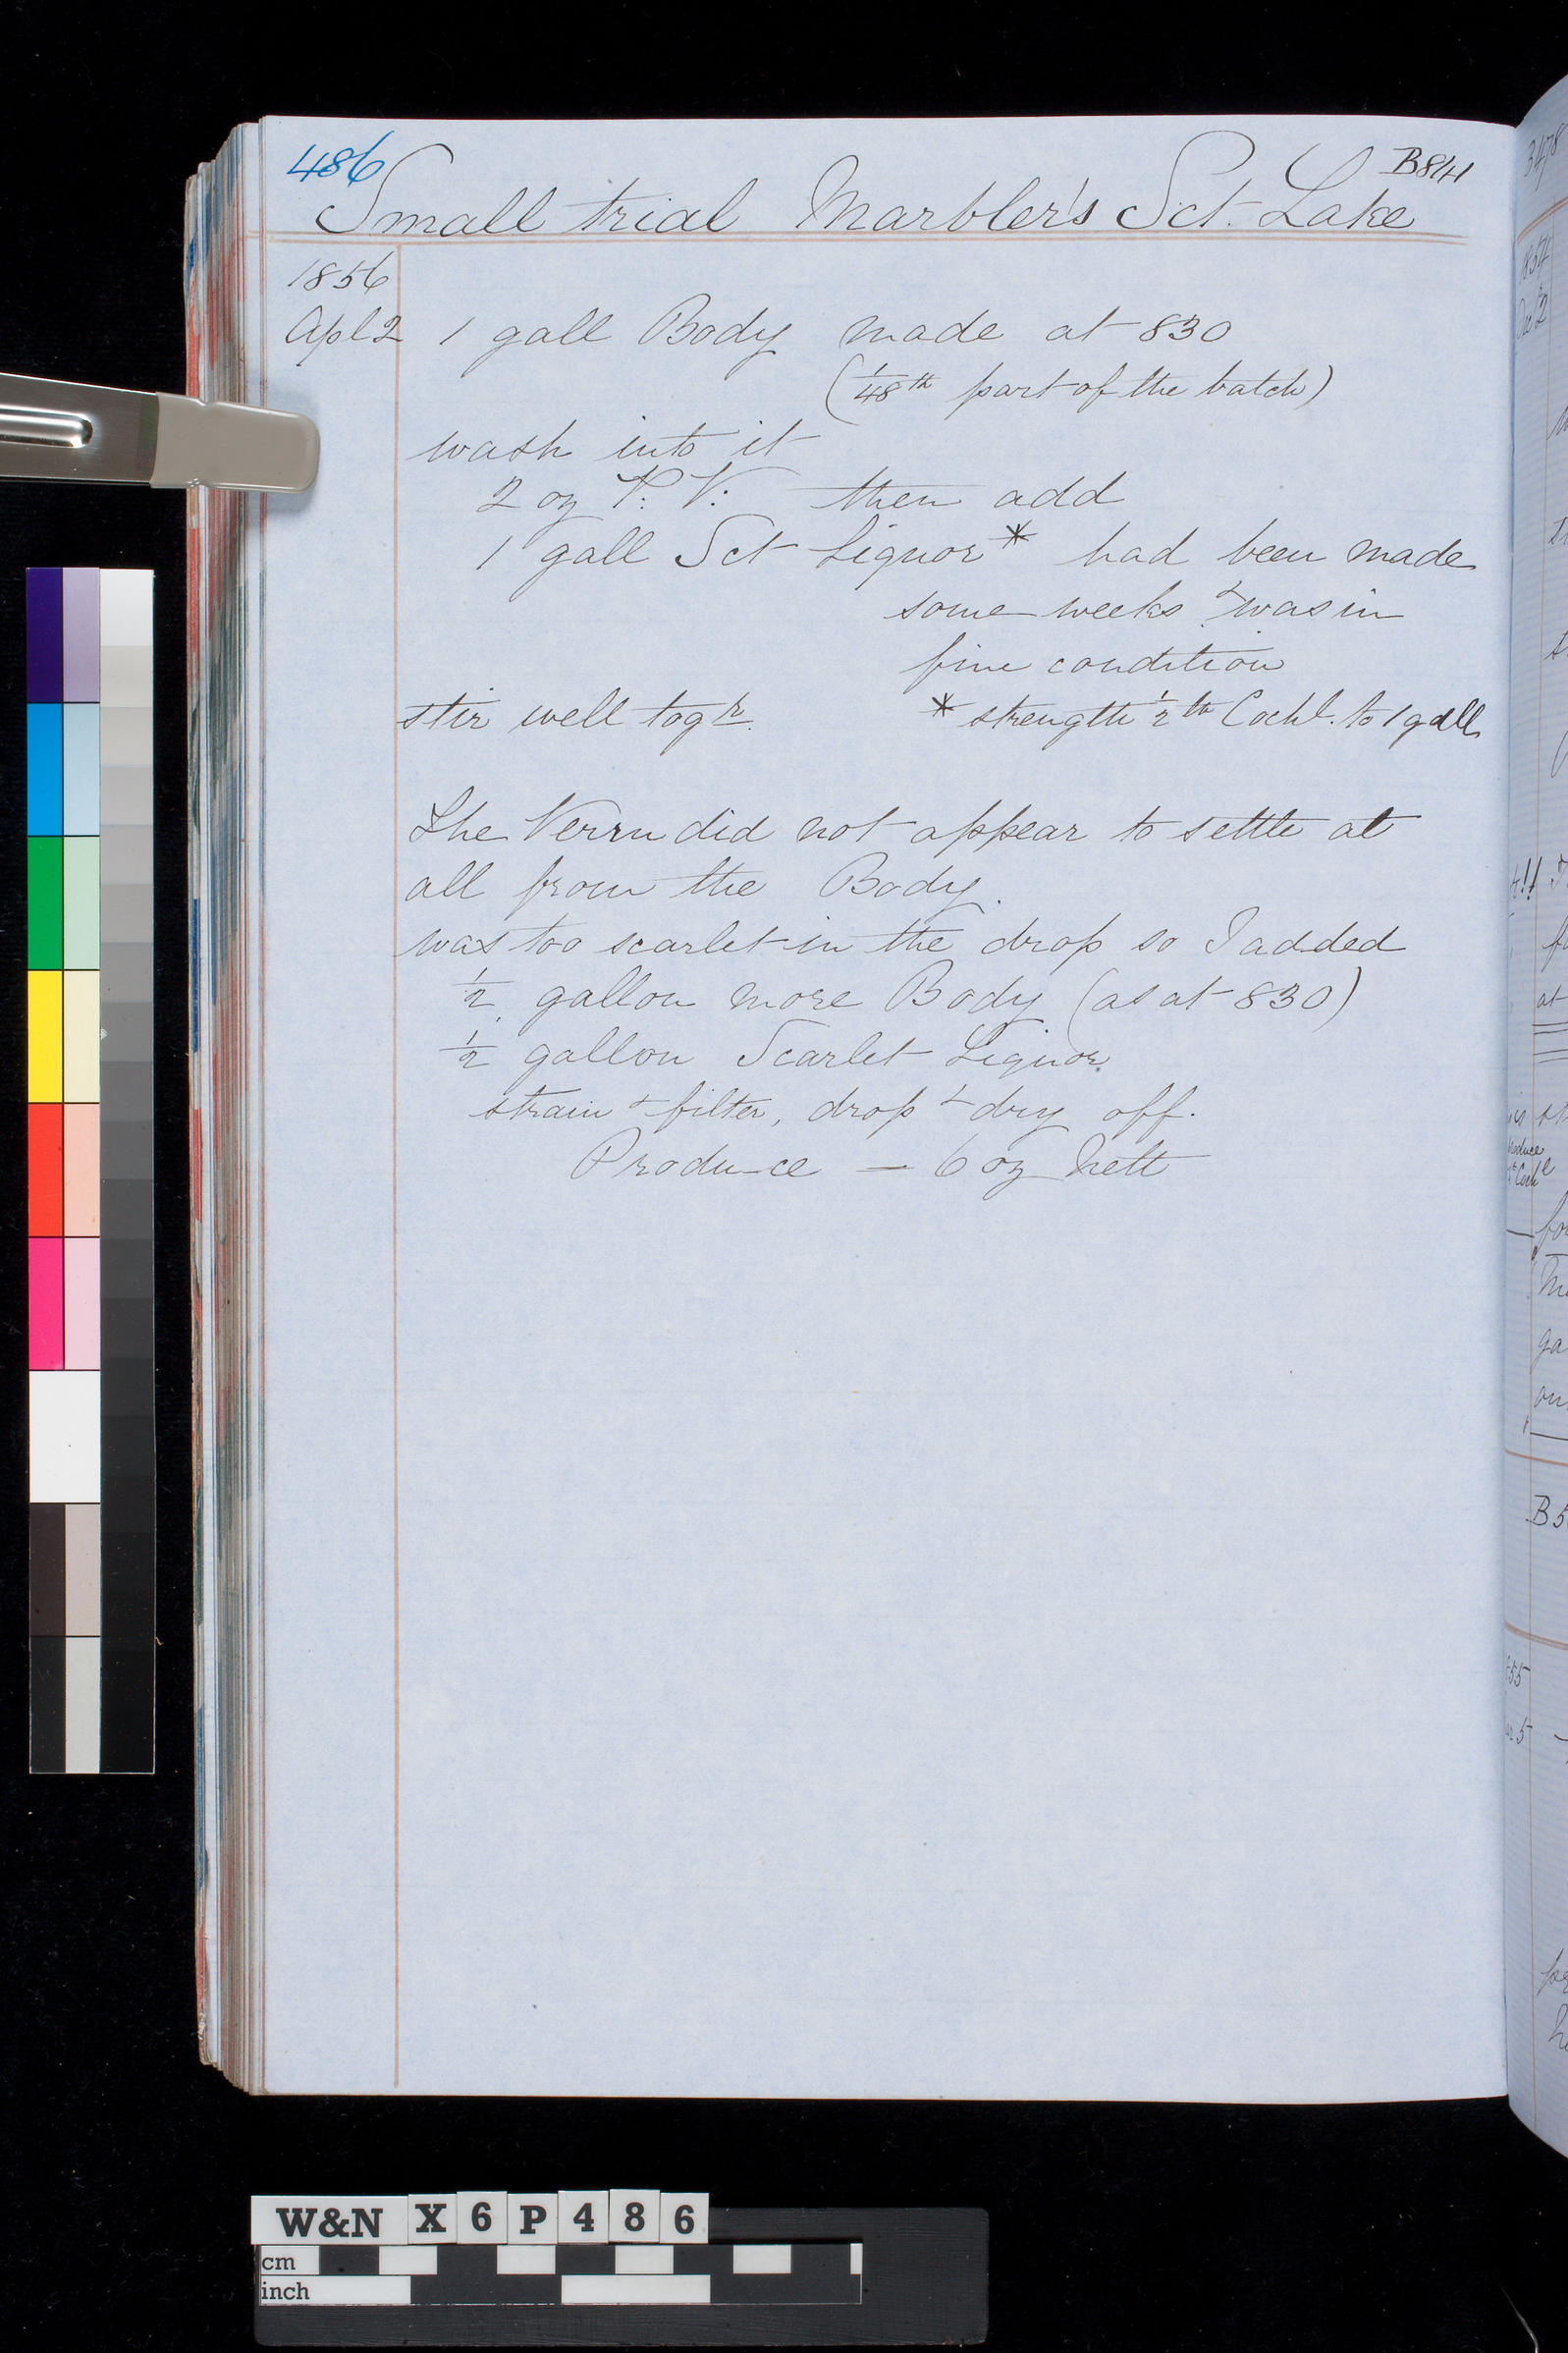 486
B814
Small trial Marbler's Sct. Lake
1856
Apl 2 1 gall Body made at 830
(1/48th part of the batch)
wash into it
2 oz P. V. then add
1 gall Sct Liquor * had been made
some weeks & was in
fine condition
stir well togr. * strength 1/2 lb Cochl. to 1 gall
The Verm did not appear to settle at
all from the Body.
was too scarlet in the drop so I added
1/2 gallon more Body (as at 830)
1/2 gallon Scarlet Liquor
strain & filter, drop & dry off.
Produce — 6 oz Nett
W&N X6P486
cm
inch